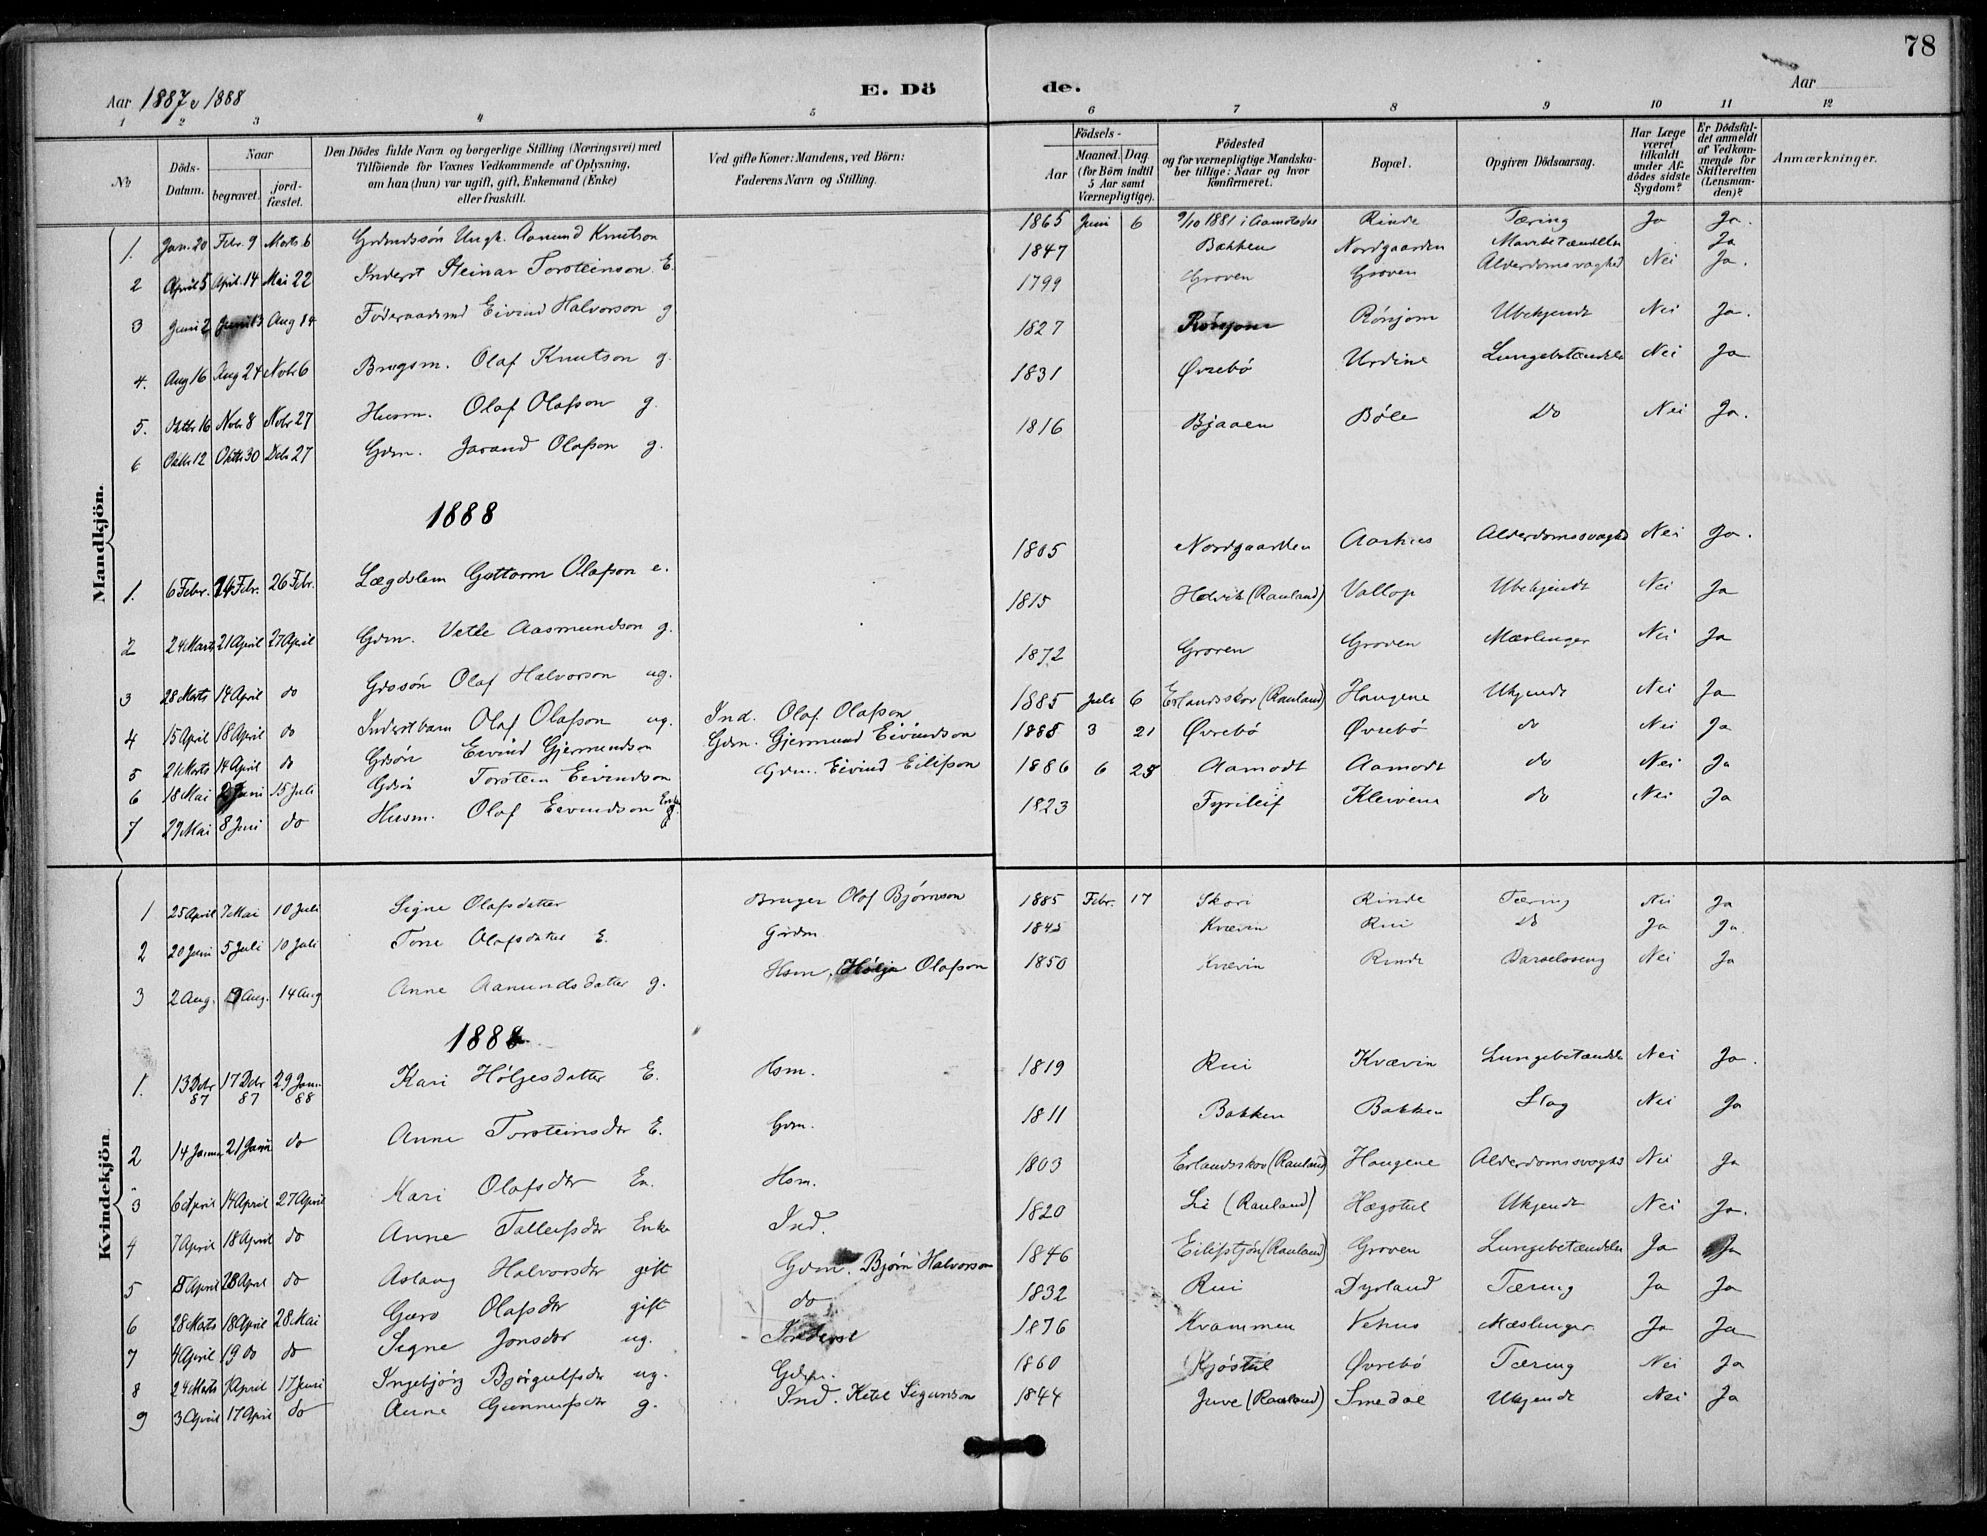 78
Aar 1887 & 1888 E. Dö de. Aar
1 2 3 4 5 6 7 8 9 10 11 12
No
Döds-Datum.
Naar
begravet.
jord-fæstet.
Den Dödes fulde Navn og borgerlige Stilling (Næringsvei) med
Tilföiende for Voxnes Vedkommende af Oplysning,
om han (hun) var ugift, gift, Enkemand (Enke)
eller fraskilt.
Ved gifte Koner: Mandens, ved Börn:
Faderens Navn og Stilling.
Födsels-
Aar
Maaned. Dag
(for Börn indtil
5 Aar samt
Værnepligtige).
Födested
og for værnepligtige Mandska-
ber tillige: Naar og hvor
konfirmeret.
Bopæl.
Opgiven Dödsaarsag.
Har Læge
været
tilkaldt
under Af-
dödes sidste
Sygdom?
Er Dödsfal-
det anmeldt
af Vedkom-
mende for
Skifteretten
(Lensman-
den)?
Anmærkninger.
Mandkjön.
1. Jan. 20 Febr. 9 Marts 6 Grdmdssön Ungk. Aamund Knutson 1865 Juni 6 9/10 1881 i Aamotsdal Rinde Tæring Ja Ja.
2 April 5 April 14 Mai 22 Inderst Steinar Torsteinson E. 1847 Bakken Nordgaarden Mavebetændelse Ja
3 Juni 2 Juni 13 Aug 14 Föderaadsmd Eivind Halvorson g 1799 Groven Groven Alderdomssvaghed Nei Ja.
4. Aug 16 Aug 24 Nobr 6 Brugsm. Olaf Knutson g. 1827 Rönjom Rönjom Ubekjendt Nei Ja.
5. Oktbr 16 Nobr 8 Nobr 27 Husm. Olaf Olafson g. 1831 Øvrebö Urdine Lungebetændelse Nei Ja
6 Oktbr 12 Oktbr 30 Debr 27 Gdm. Jarand Olafson g. 1816 Bjaaen Böle Do Nei Ja.
1888
1. 6 Febr. 14 Febr. 26 Febr. Lægdslem Guttorm Olafson e. 1805 Nordgaarden Aarhus Alderdomssvaghed Nei Ja.
2 24 Marts 21 April 27 April Gdm. Vetle Aasmundson g. 1815 Holvik (Rauland) Vallop Ubekjendt Nei Ja
3 28 Marts 14 April do Gdssön Olaf Halvorson ug. 1872 Groven Groven Mæslinger Nei Ja
4 15 April 18 April do Inderstbarn Olaf Olafson ug. Ind. Olaf Olafson 1885 Juli 6 Erlandsskov (Rauland) Haugene Ukjendt Nei Ja
5 21 Marts 14 April do Gdsön Eivind Gjermundson Gdm. Gjermund Eivindson 1885 3 21 Øvrebö Øvrebö do Nei Ja
6 18 Mai 2 Juni 15 Juli Gdsön Torstein Eivindson Gdm. Eivind Eilifson 1886 6 25 Aamodt Aamodt do Nei Ja
7 29 Mai 8 Juni do Husm. Olaf Eivindson 1823 Fyrileif Kleivene do Nei Ja
Kvindekjön
1 25 April 7 Mai 10 Juli Signe Olafsdatter Bruger Olaf Bjørnson 1885 Febr. 17 Skori Rinde Tæring Nei Ja
2 20 Juni 5 Juli 10 Juli Tone Olafsdatter E. Grdm. 1845 Kvævin Rui Do Ja Ja.
3 2 Aug. 9 Aug. 14 Aug Anne Aamundsdatter g. Hsm. Hölje Olafson 1850 Kvævin Rinde Barselseng Nei Ja
1888
1. 13 Debr 87 17 Debr 87 29 Janr 88 Kari Höljesdatter E. Hsm. 1819 Rui Kvævin Lungebetændelse Nei Ja.
2 14 Januar 21 Januar do Anne Torsteinsdtr E. Gdm. 1811 Bakken Bakken Slag Nei Ja
3 6 April 14 April 27 April Kari Olafsdtr En. Hsm. 1803 Erlandsskov (Rauland) Haugene Alderdomssvaghed Nei Ja
4 7 April 18 April do Anne Tallefsdtr Enke Ind. 1820 Li (Rauland) Hægotul Ukjendt Nei Ja.
5 5 April 28 April do Aslaug Halvorsdtr gift Gdm. Bjørn Halvorson 1846 Eilifstjön (Rauland) Groven Lungebetændelse Ja Ja
6 28 Marts 18 April 28 Mai Guro Olafsdtr gift do 1832 Rui Dyrland Tæring Ja Ja
7 4 April 19 do do Signe Jonsdtr ug. Inderst 1876 Kvammen Vehus Mæslinger Ja Ja
8 24 Marts April 17 Juni Ingebjörg Bjørgulfsdtr ug. Gdm. 1860 Kjöstul Øvrebö Tæring Nei Ja
9 3 April 17 April do Anne Gunnufsdtr g. Ind. Ketil Sigurdson 1844 Juve (Rauland) Smedal Ukjendt Nei Ja